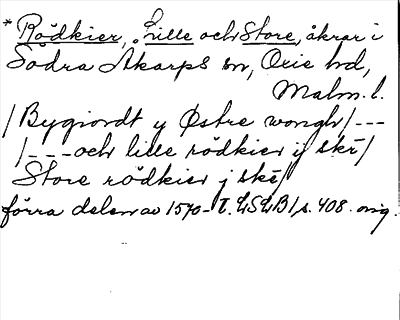 * Rödkier, Lille och Store, åkrar i
Södra Åkarps sn, Oxie hd,
Malm. l.
/Bygiordt y Østre wongh/ ---
/--- och lille rödkier ij skē/
Store rödkier j skē/
förra delen av 1570-t. LSLB1 s. 408. orig.